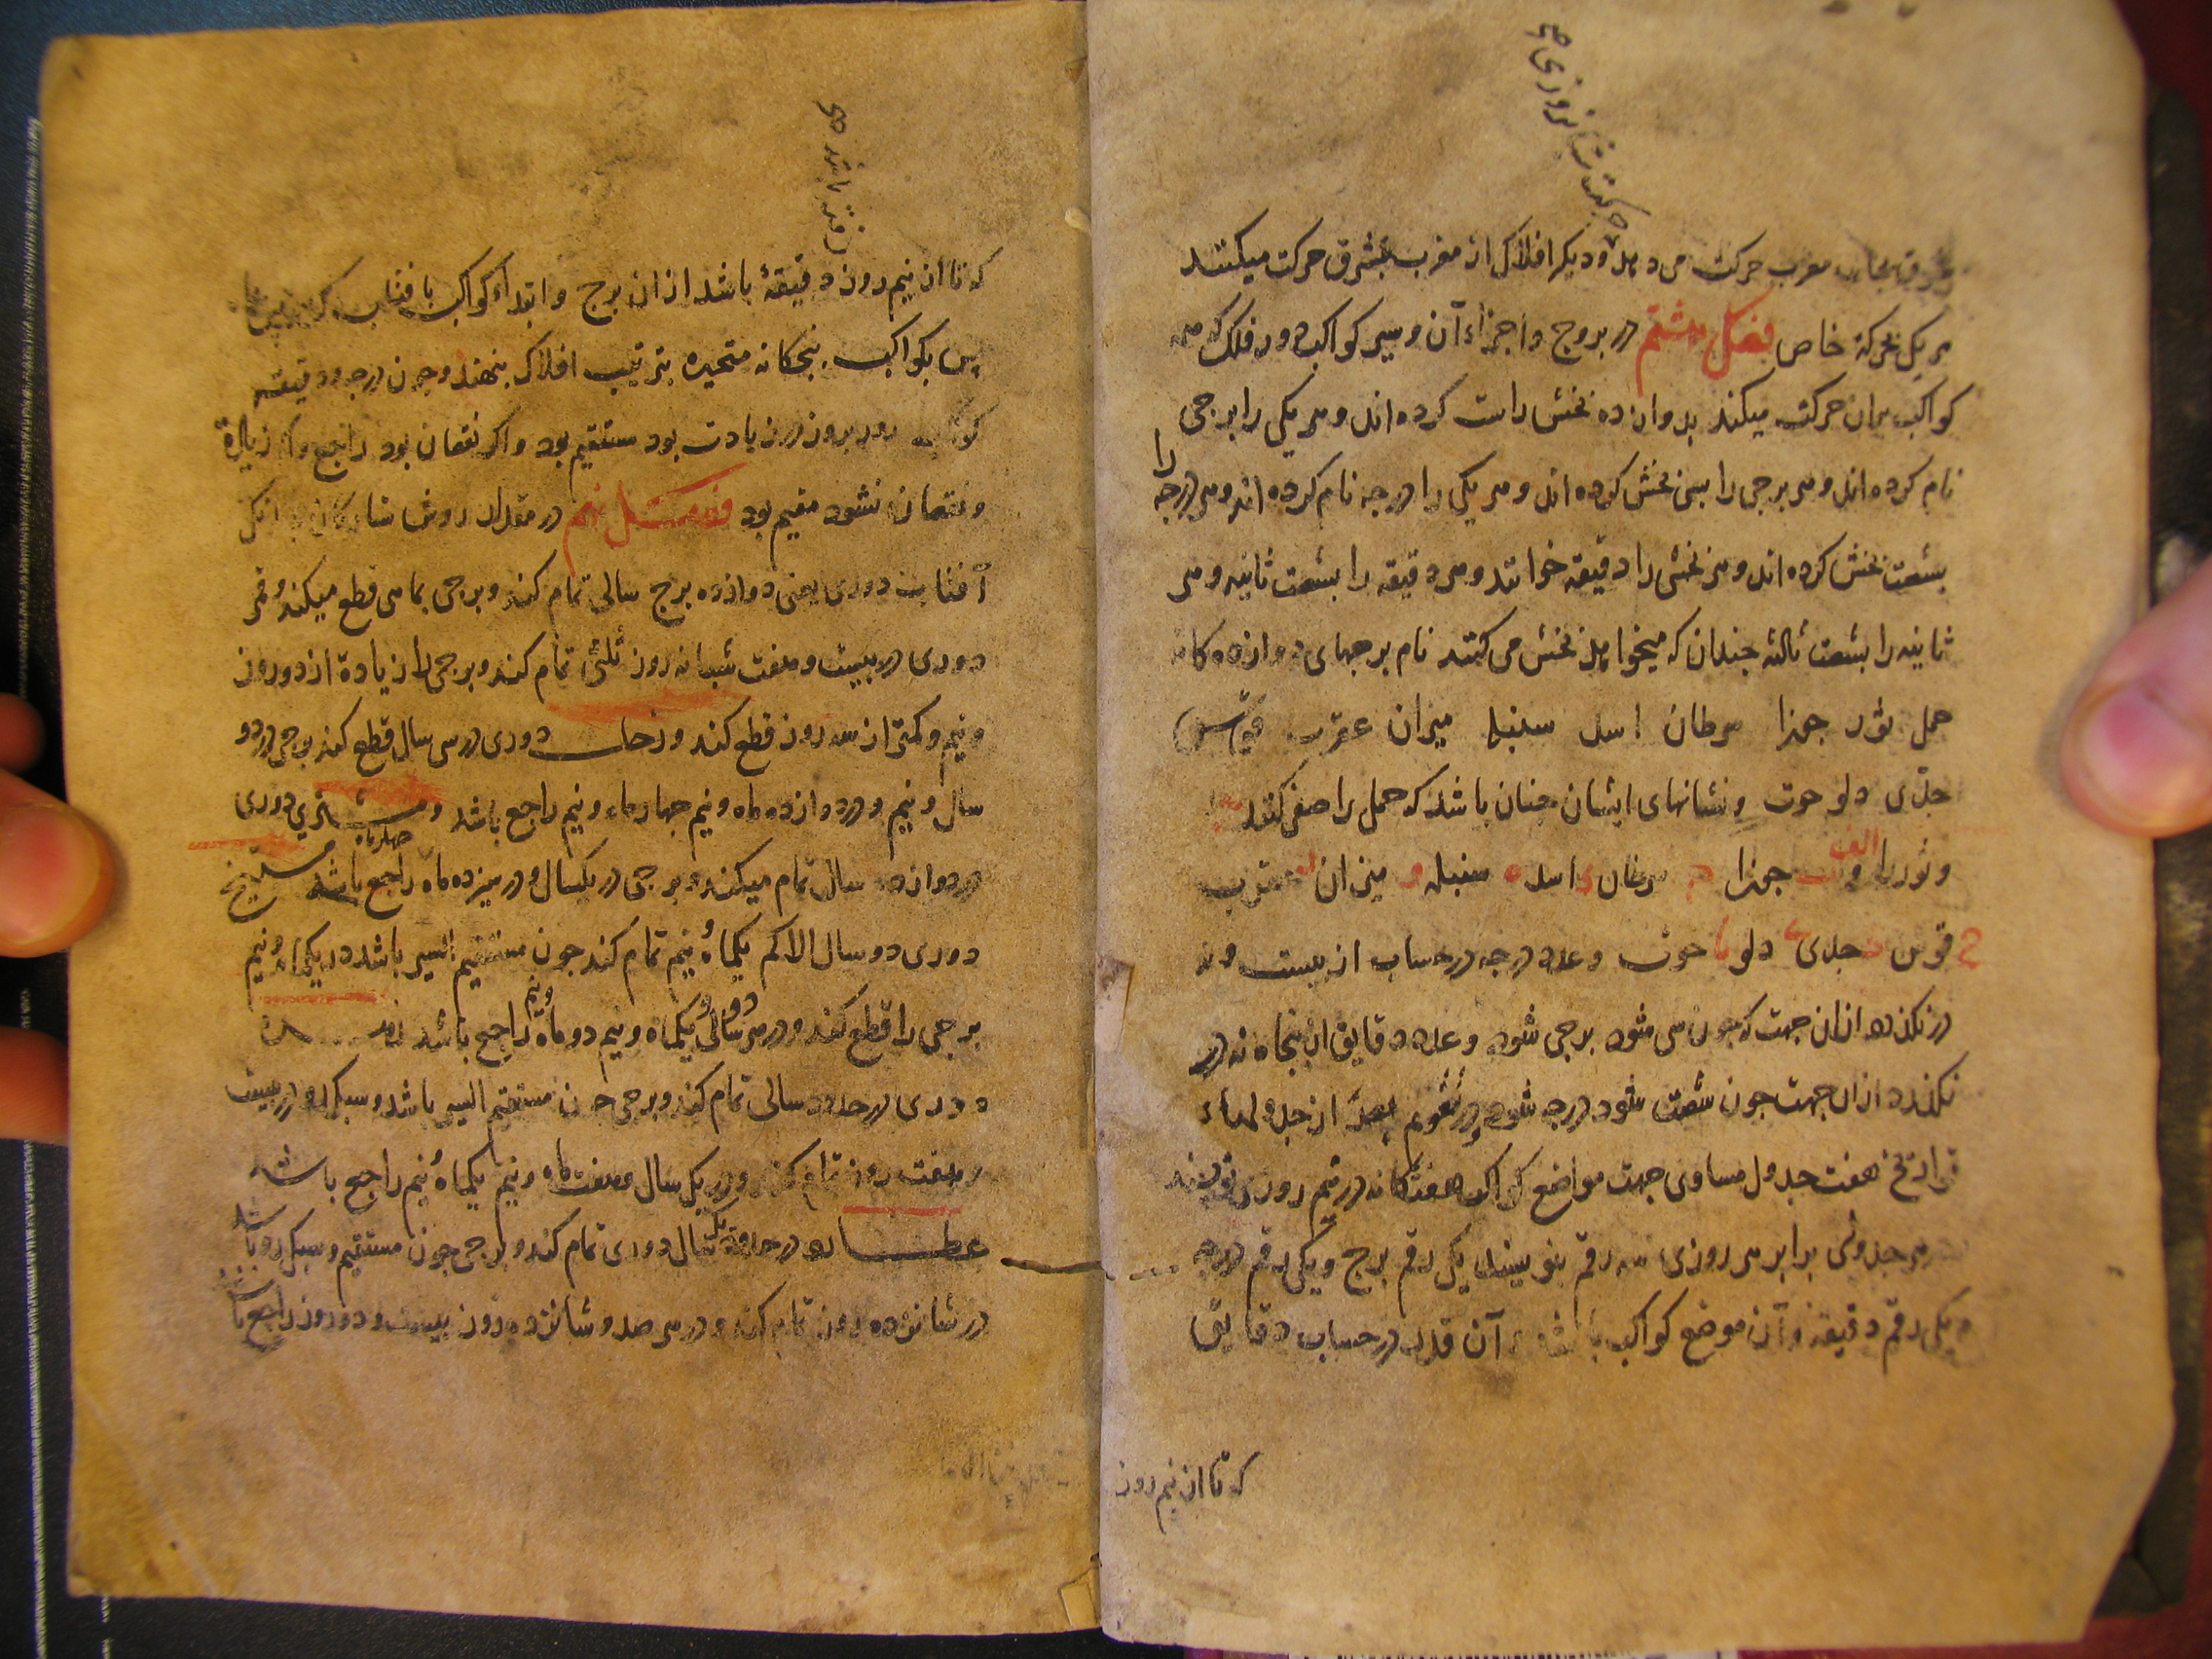 مغرب حرکت می دهد و دیکر افلاک از مغرب بمشرق حرکت میکنند
هر یک بحرکة خاص فصل هشتم در بروج و اجزاء آن و سیر کواکب در فلک که همه
کواکب بران حرکت میکند بدوازده بخش راست کرده اند و هر یکی را برجی
نام کرده اند و هر برجی را بسی بخش کرده اند و هر یکی را درجه نام کرده اند و هر درجه را
بشصت بخش کرده اند و هر بخشی را دقیقه خوانند و هر دقیقه را بشصت ثانیه و هر
ثانیه را بشصت ثالثه چندان که میخواهند بخش می کنند نام برجهای دوازده کانه
حمل ثور جوزا سرطان اسد سنبله میزان عقرب قوس
جدی دلو حوت و نشانهای ایشان چنان باشد که حمل را صفر کنند
و ثور را الف و جوزا ب سرطان ج اسد د سنبله ه میزان و عقرب
قوس ح جدی ط دلو ی حوت یا و عدد درجه در حساب از بیست و نه
در نکذرد ازان جهت که چون سی شود برجی شود و عدد دقایق از پنجاه نه در
نکذرد ازان جهت چون شصت شود درجه شود و در تقویم بعد از جدولهاء
تواریخ هفت جدول مساوی جهت مواضع کواکب هفتکانه در نیم روزی نویسند
هر جدولی برابر هر روزی سه رقم بنویسند یکی رقم برج و یکی رقم درجه
و یکی رقم دقیقه و آن موضع کواکب باشد آن قدر در حساب دقایق
که تا از نیم روز
که تا از نیم روز دقیقهٔ باشد ازان برج و ابتداء کواکب بافتاب
پس بکواکب پنجکانه متحیره بترتیب افلاک بنهند و چون درجه و دقیقه
کوکب روز بروز در زیادت بود مستقیم بود و اکر نقصان بود راجع و اکر زیادة
و نقصان نشود مقیم بود فصل نهم در مقدار روش
آفتاب دوری یعنی دوازده برج سالی تمام کند و برجی بماهی قطع میکند و قمر
دوری در بیست و هفت شبانه روز ثلثی تمام کند و برجی را زیادة از دو روز
و نیم و کمتر از سه روز قطع کند و زحل دوری در سی سال قطع کند برجی در دو
سال و نیم و در دوازده ماه و نیم چهار ماه و نیم راجع باشد و مشتری دوری
در دوازده سال تمام میکند و برجی در یکسال و در سیزده ماه چهار ماه راجع باشد مریخ
دوری دو سال الا کم یکماه و نیم تمام کند چون مستقیم السیر باشد در یکماه و نیم
برجی را قطع کند و در هر دو سالی و یکماه و نیم دو ماه و نیم راجع باشد
دوری در حدود سالی تمام کند و برجی چون مستقیم السیر باشد و سبک رو در بیست
و هفت روز تمام کند و در یک سال و هفت ماه و نیم یکماه و نیم راجع باشد
عطارد در حدود یک سال دوری تمام کند و برجی چون مستقیم و سبک رو باشد
در شانزده روز تمام کند و در هر صد و شانزده روز بیست و دو روز راجع باشد